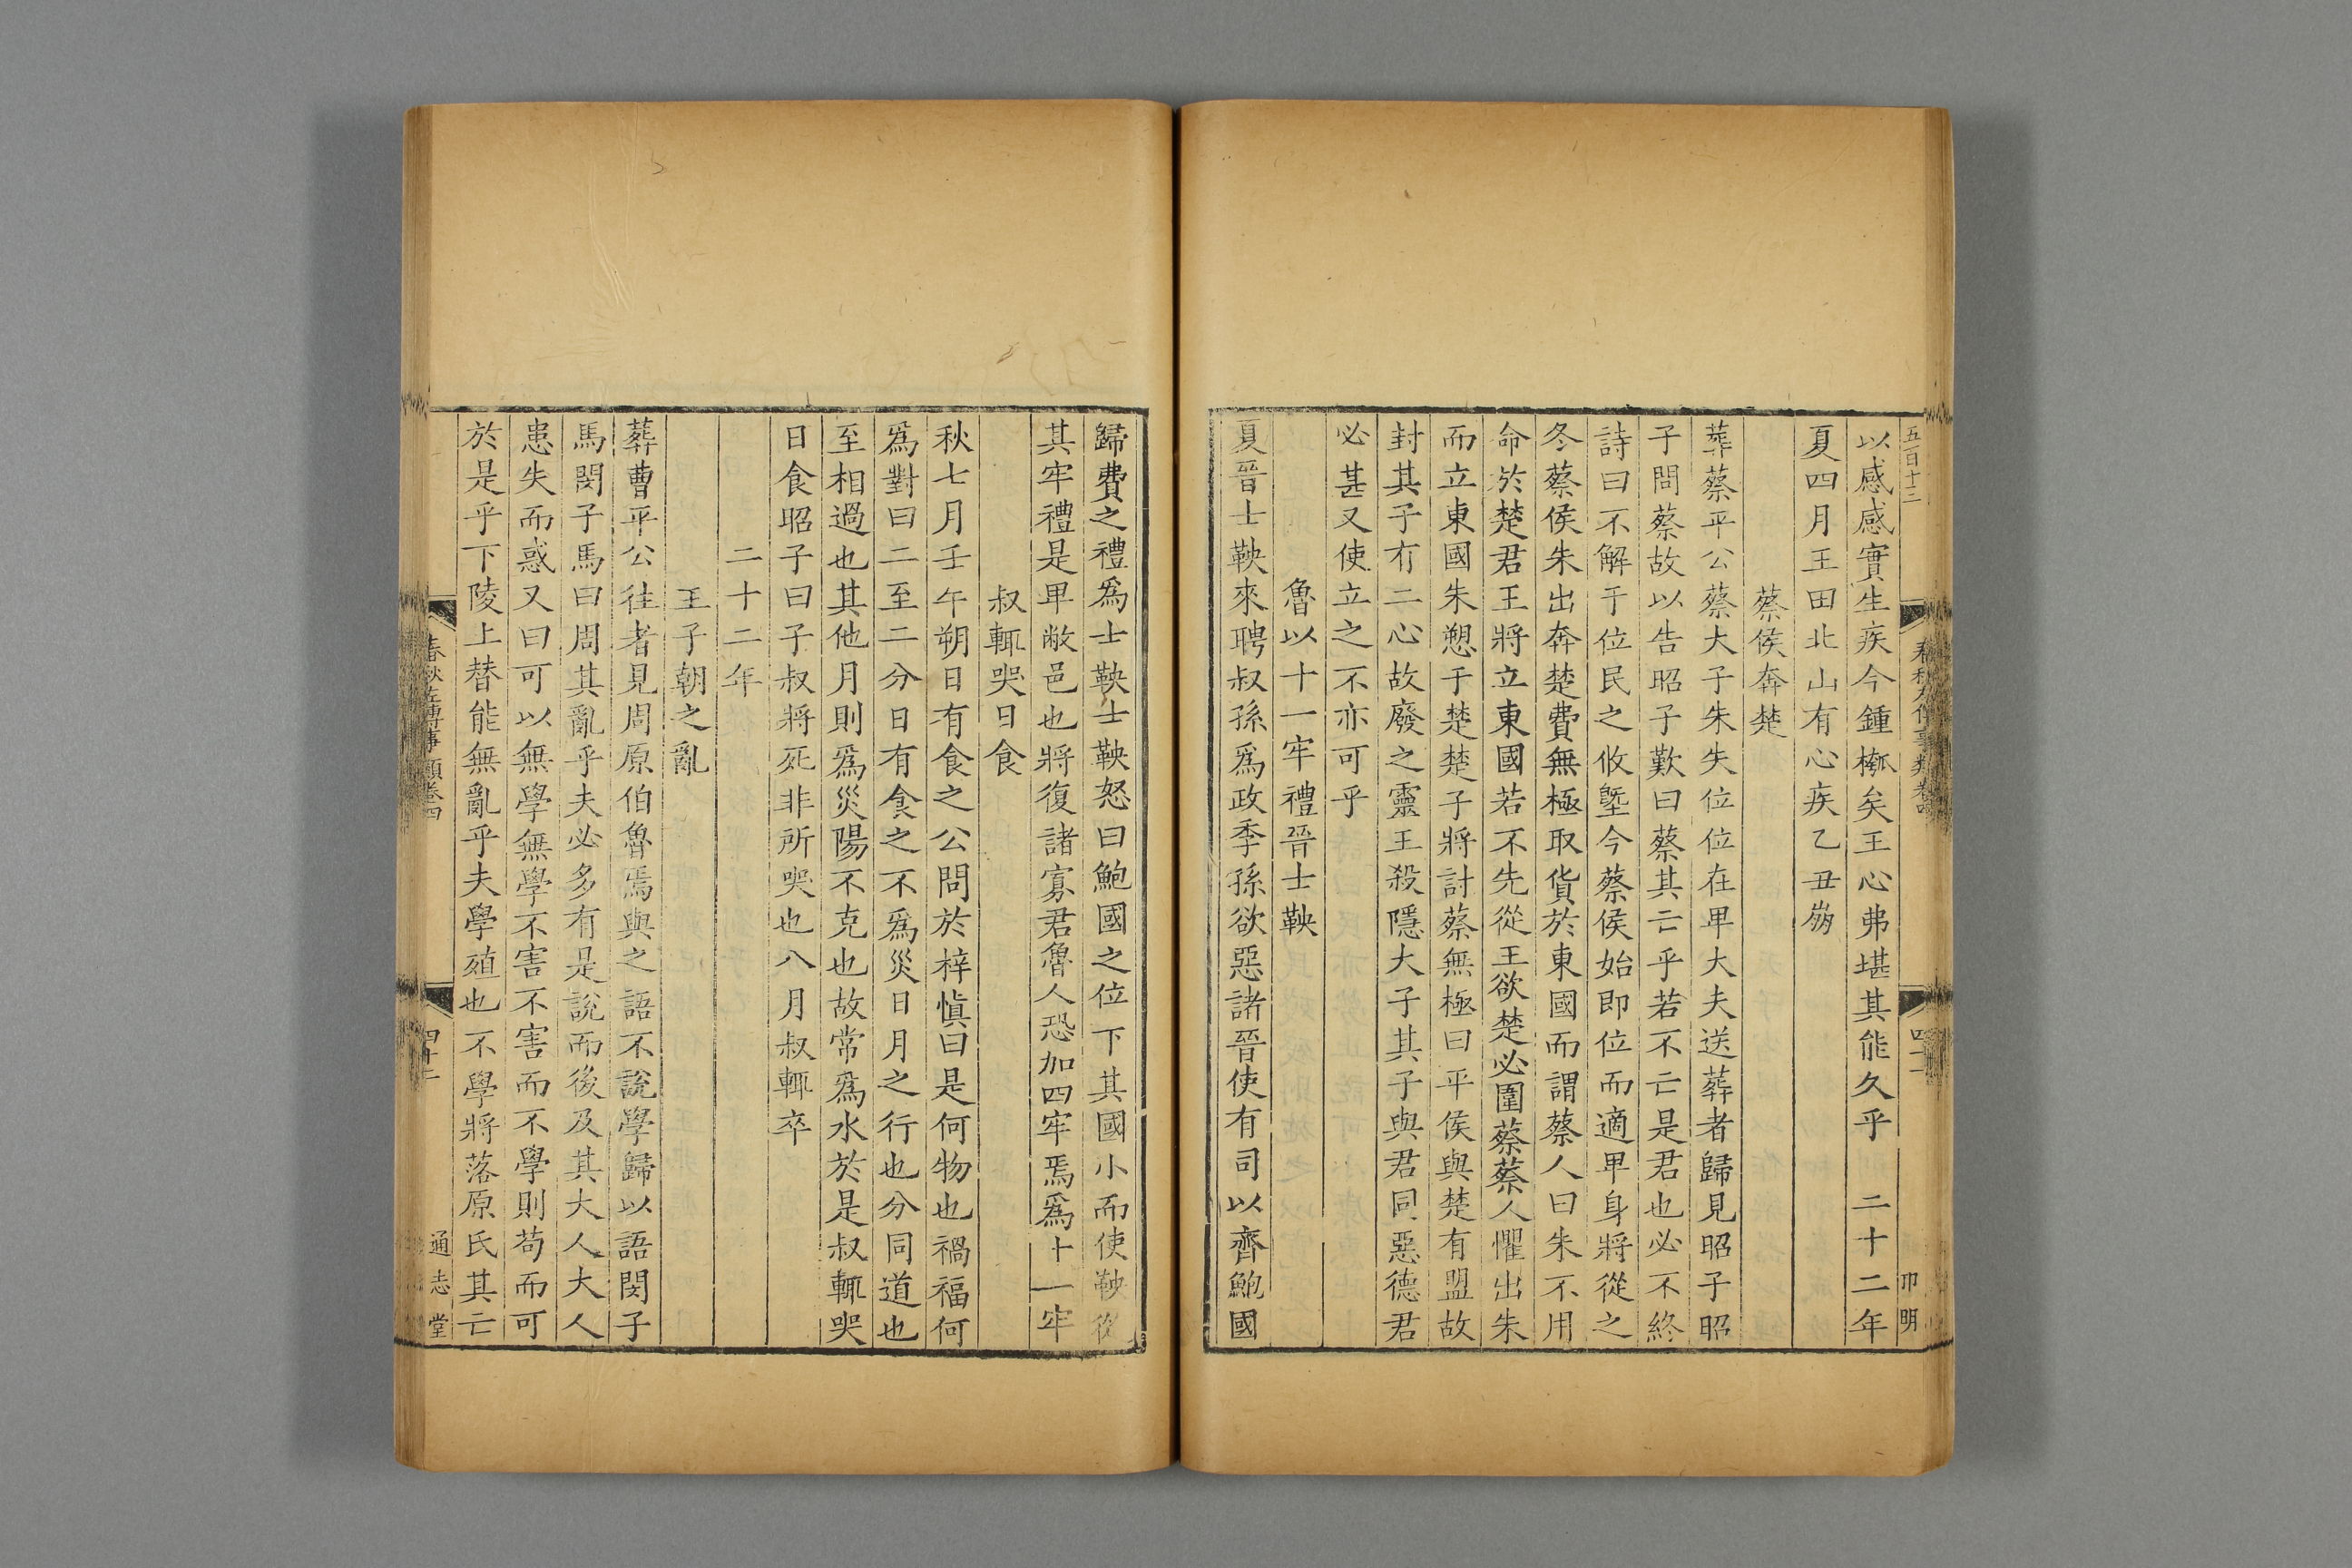 五百十三
以感感實生疾今鍾槬矣王心弗堪其能久乎　二十二年
夏四月王田北山有心疾乙丑崩
蔡侯奔楚
葬蔡平公蔡大子朱失位位在𤰞大夫送葬者歸見昭子昭
子問蔡故以告昭子歎曰蔡其亡乎若不亡是君也必不終
詩曰不解于位民之攸塈今蔡侯始即位而適𤰞身將從之
冬蔡侯朱出奔楚費無極取貨於東國而謂蔡人曰朱不用
命於楚君王將立東國若不先從王欲楚必圍蔡蔡人懼出朱
而立東國朱愬于楚楚子將討蔡無極曰平侯與楚有盟故
封其子有二心故廢之靈王殺隱大子其子與君同惡德君
必甚又使立之不亦可乎
魯以十一牢禮晉士鞅
夏晉士鞅來聘叔孫爲政季孫欲惡諸晉使有司以齊鮑國
歸費之禮爲士鞅士鞅怒曰鮑國之位下其國小而使鞅從
其牢禮是𤰞敝邑也將復諸寡君魯人恐加四牢焉爲十一牢
叔輒哭日食
秋七月壬午朔日有食之公問於梓慎曰是何物也禍福何
爲對曰二至二分日有食之不爲災日月之行也分同道也
至相過也其他月則爲災陽不克也故常爲水於是叔輒哭
日食昭子曰子叔將死非所哭也八月叔輒卒
二十二年
王子朝之亂
葬曹平公往者見周原伯魯焉與之語不說學歸以語閔子
馬閔子馬曰周其亂乎夫必多有是說而後及其大人大人
患失而惑又曰可以無學無學不害不害而不學則苟而可
於是乎下陵上替能無亂乎夫學殖也不學將落原氏其亡
春秋左傳事類卷四
通志堂